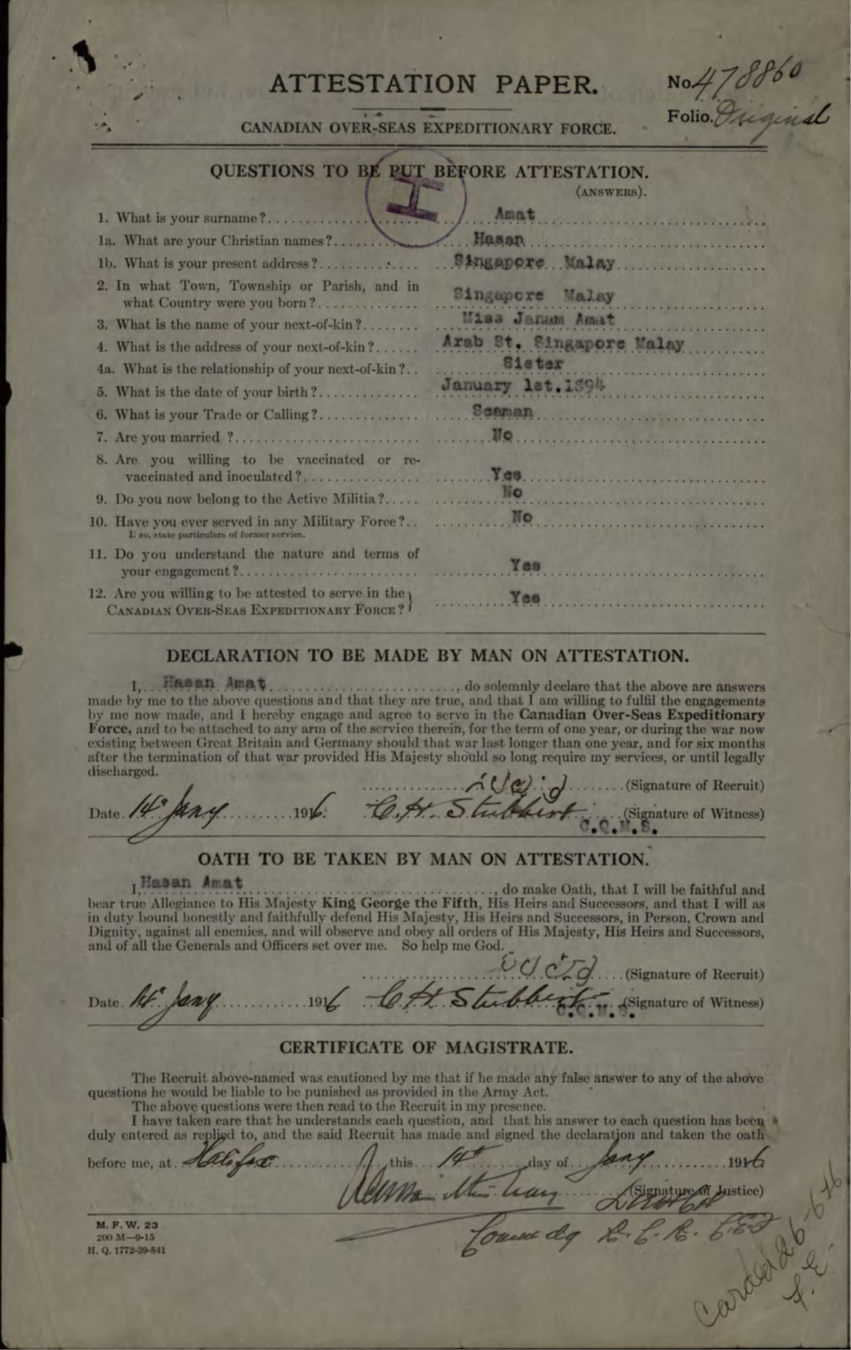 ATTESTATION PAPER.
No. 478860
Folio. Original
CANADIAN OVER-SEAS EXPEDITIONARY FORCE.
QUESTIONS TO BE PUT BEFORE ATTESTATION.
(ANSWERS).
H
1. What is your surname?.......... Amat
1a. What are your Christian names?.......... Hasan
1b. What is your present address?.......... Singapore Malay
2. In what Town, Township or Parish, and in
what Country were you born?.......... Singapore Malay
3. What is the name of your next-of-kin?.......... Miss Janum Amat
4. What is the address of your next-of-kin?...... Arab St. Singapore Malay
4a. What is the relationship of your next-of-kin?.. Sister
5. What is the date of your birth?.......... January 1st.1894
6. What is your Trade or Calling?.......... Seaman
7. Are you married ?.......... No
8. Are you willing to be vaccinated or re-
vaccinated and inoculated?.......... Yes
9. Do you now belong to the Active Militia?..... No
10. Have you ever served in any Military Force?.. No
If so, state particulars of former service.
11. Do you understand the nature and terms of
your engagement?.......... Yes
12. Are you willing to be attested to serve in the
CANADIAN OVER-SEAS EXPEDITIONARY FORCE? Yes
DECLARATION TO BE MADE BY MAN ON ATTESTATION.
I, Hasan Amat, do solemnly declare that the above are answers
made by me to the above questions and that they are true, and that I am willing to fulfil the engagements
by me now made, and I hereby engage and agree to serve in the Canadian Over-Seas Expeditionary
Force, and to be attached to any arm of the service therein, for the term of one year, or during the war now
existing between Great Britain and Germany should that war last longer than one year, and for six months
after the termination of that war provided His Majesty should so long require my services, or until legally
discharged.
(Signature of Recruit)
Date. 14th Jany 1916. C. H. Stubbert (Signature of Witness)
C.C.M.S.
OATH TO BE TAKEN BY MAN ON ATTESTATION.
I, Hasan Amat, do make Oath, that I will be faithful and
bear true Allegiance to His Majesty King George the Fifth, His Heirs and Successors, and that I will as
in duty bound honestly and faithfully defend His Majesty, His Heirs and Successors, in Person, Crown and
Dignity, against all enemies, and will observe and obey all orders of His Majesty, His Heirs and Successors,
and of all the Generals and Officers set over me. So help me God.
(Signature of Recruit)
Date. 14th Jany 1916 C H Stubbert (Signature of Witness)
C.C.M.S.
CERTIFICATE OF MAGISTRATE.
The Recruit above-named was cautioned by me that if he made any false answer to any of the above
questions he would be liable to be punished as provided in the Army Act.
The above questions were then read to the Recruit in my presence.
I have taken care that he understands each question, and that his answer to each question has been
duly entered as replied to, and the said Recruit has made and signed the declaration and taken the oath
before me, at Halifax this 14th day of Jany 1916
(Signature of Justice)
Comdg R. C. R. CEF
M. F. W. 23
200 M—9-15
H. Q. 1772-39-841
Carded 26-6-